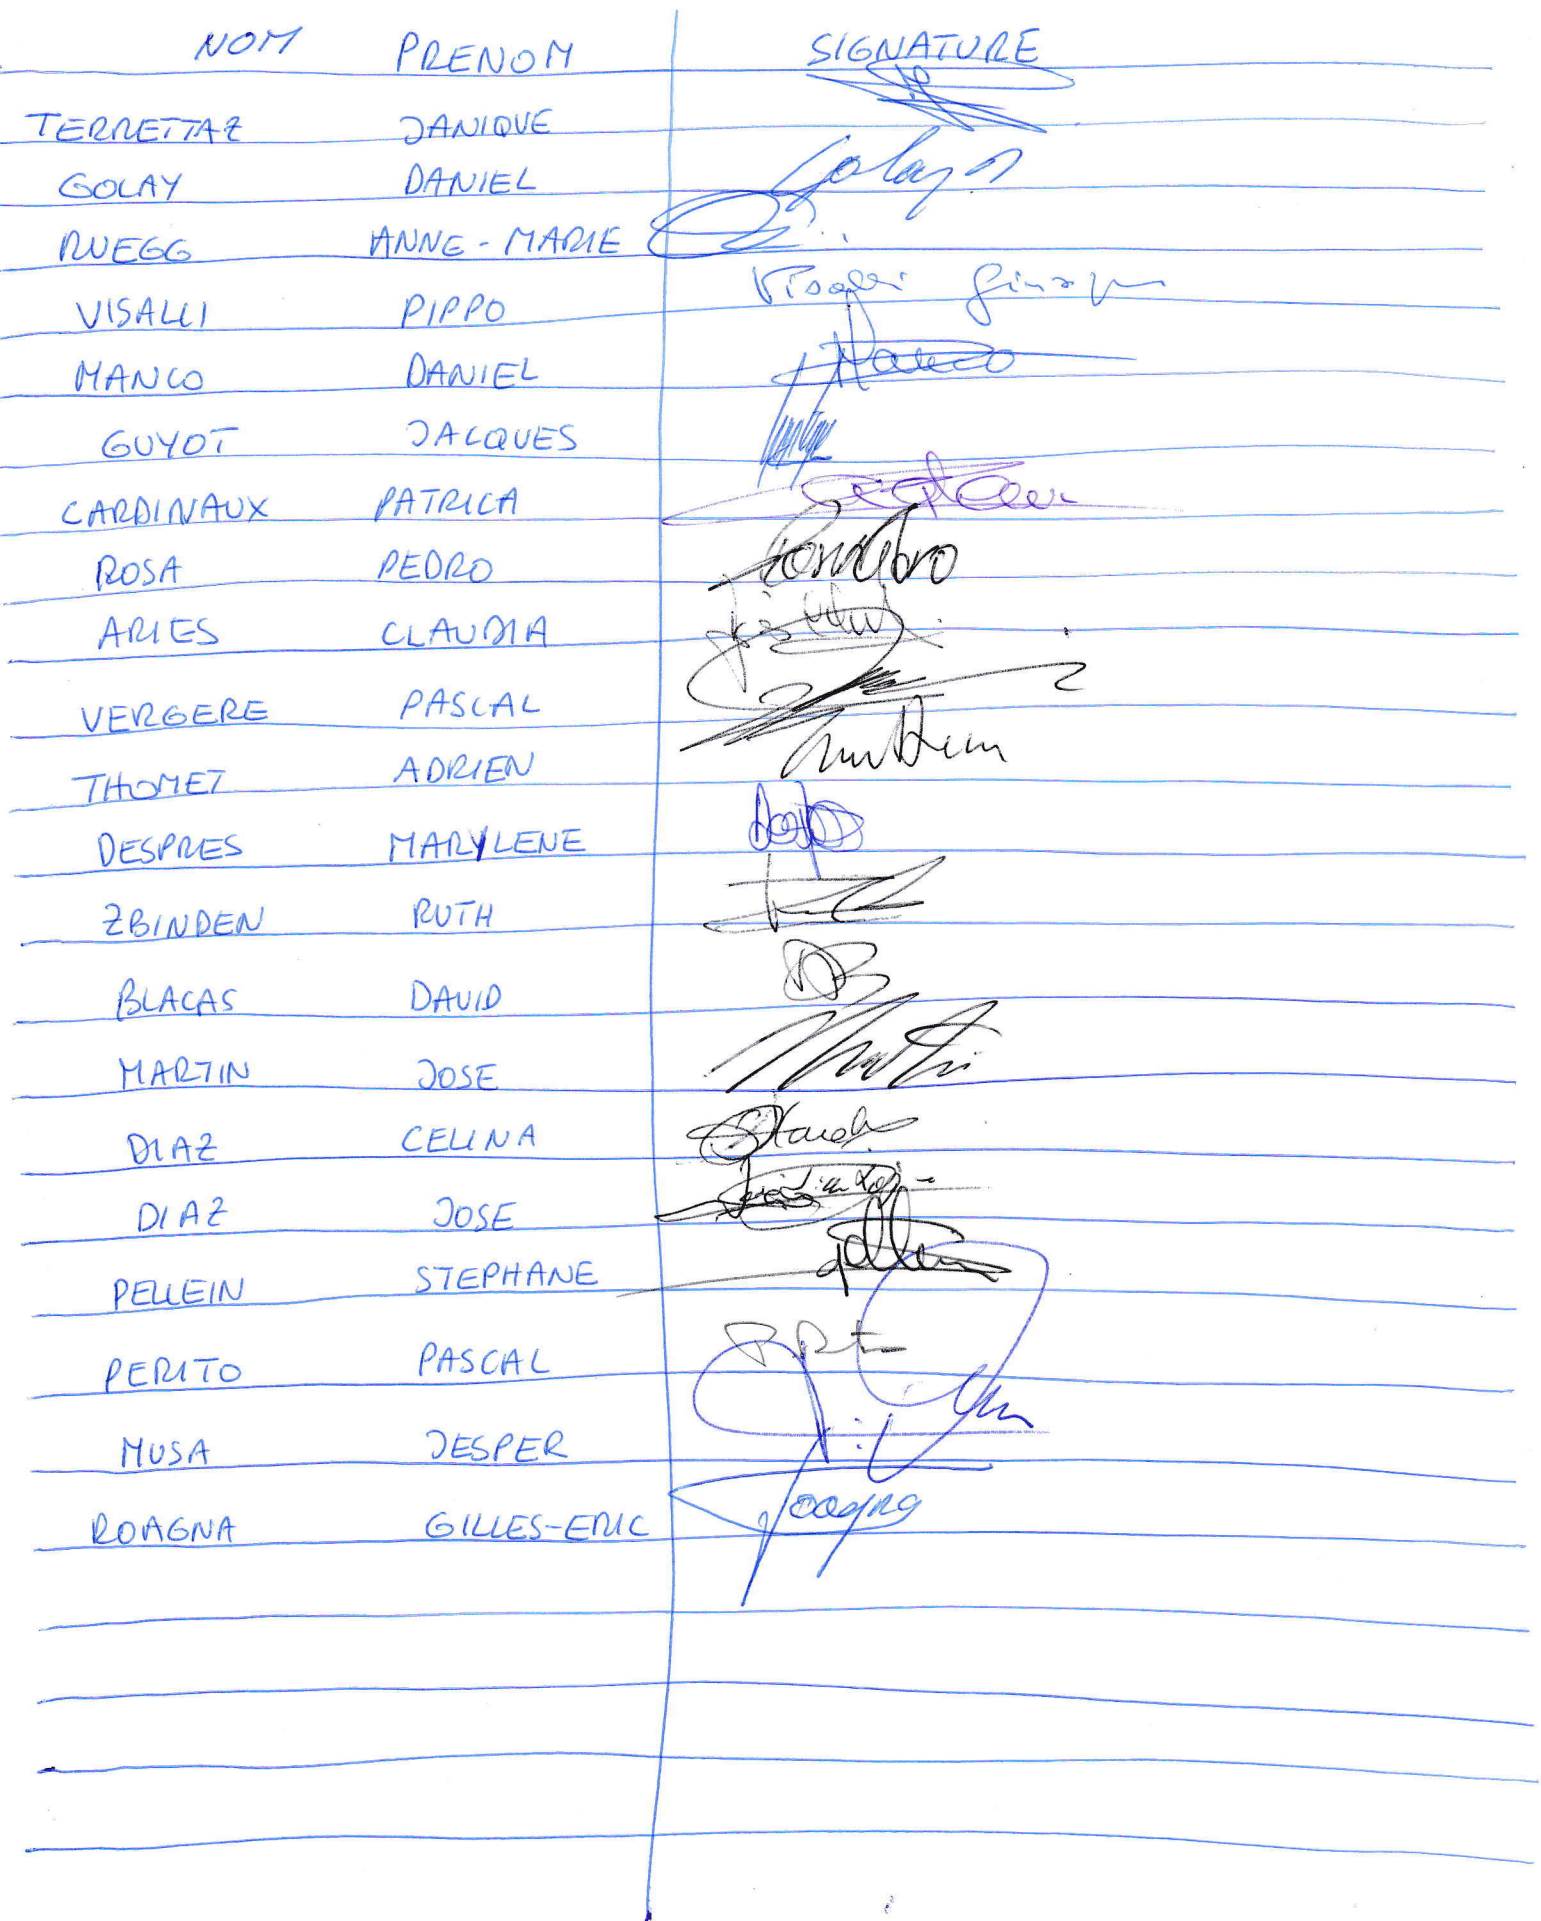 NOM PRENOM SIGNATURE
TERRETTAZ JANIQUE
GOLAY DANIEL Golay D
RUEGG ANNE-MARIE
VISALLI PIPPO Visalli
MANCO DANIEL Manco
GUYOT JACQUES
CARDINAUX PATRICA
ROSA PEDRO
ARIES CLAUDIA
VERGERE PASCAL
THOMET ADRIEN
DESPRES MARYLENE
ZBINDEN RUTH
BLACAS DAVID DB
MARTIN JOSE Martin
DIAZ CELINA
DIAZ JOSE
PELLEIN STEPHANE
PERITO PASCAL
MUSA JESPER
ROAGNA GILLES-ERIC Roagna